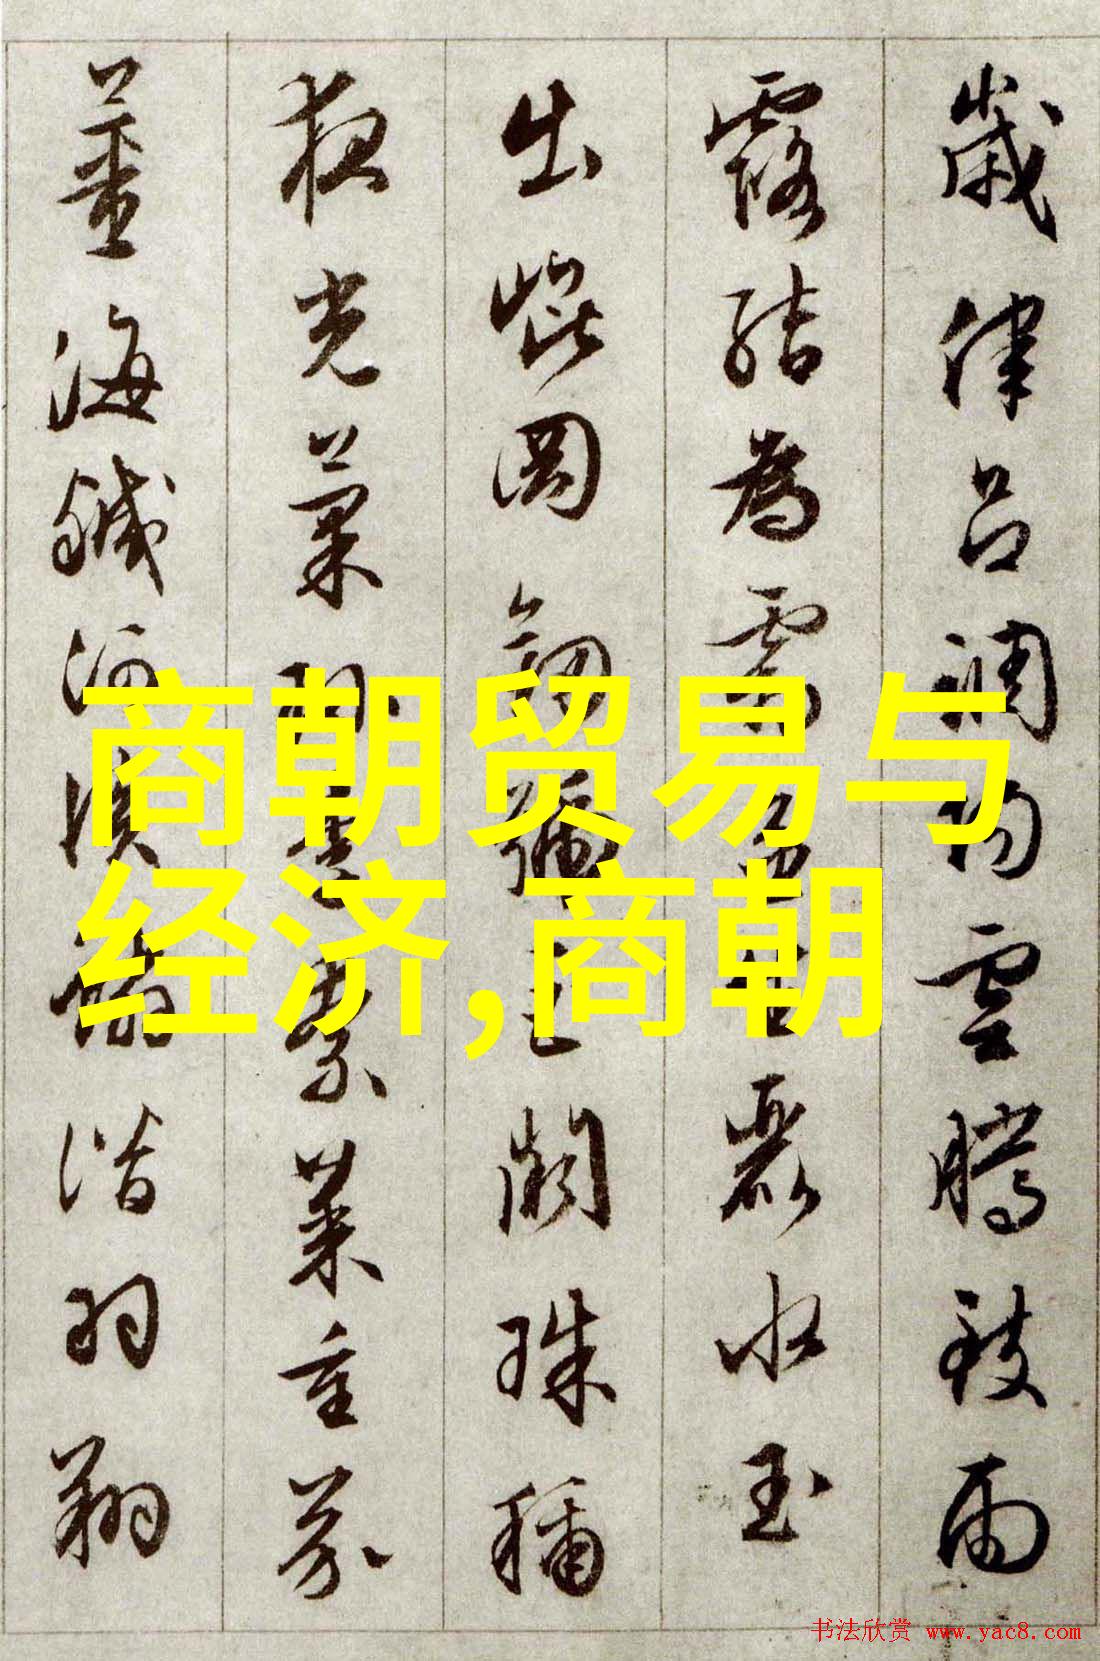 歲律呂調陽雲騰致雨
露結為霜金生麗水玉
出崐岡劍號巨闕珠稱
夜光菓珍李柰菜重芥
薑海鹹河淡鱗潛羽翔
商朝贸易与
经济,商朝
书法欣赏 www.yac8.com